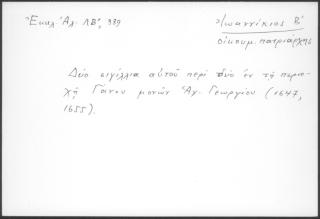 Ἐκκλ. Ἀλ. ΛΒ', 939
Ἰωαννίκιος Β'
οἰκουμ. πατριάρχης
Δύο σιγίλλια αὐτοῦ περὶ δύο ἐν τῇ περιο-
χῇ Γάνου μονῶν Ἁγ. Γεωργίου (1647,
1655).